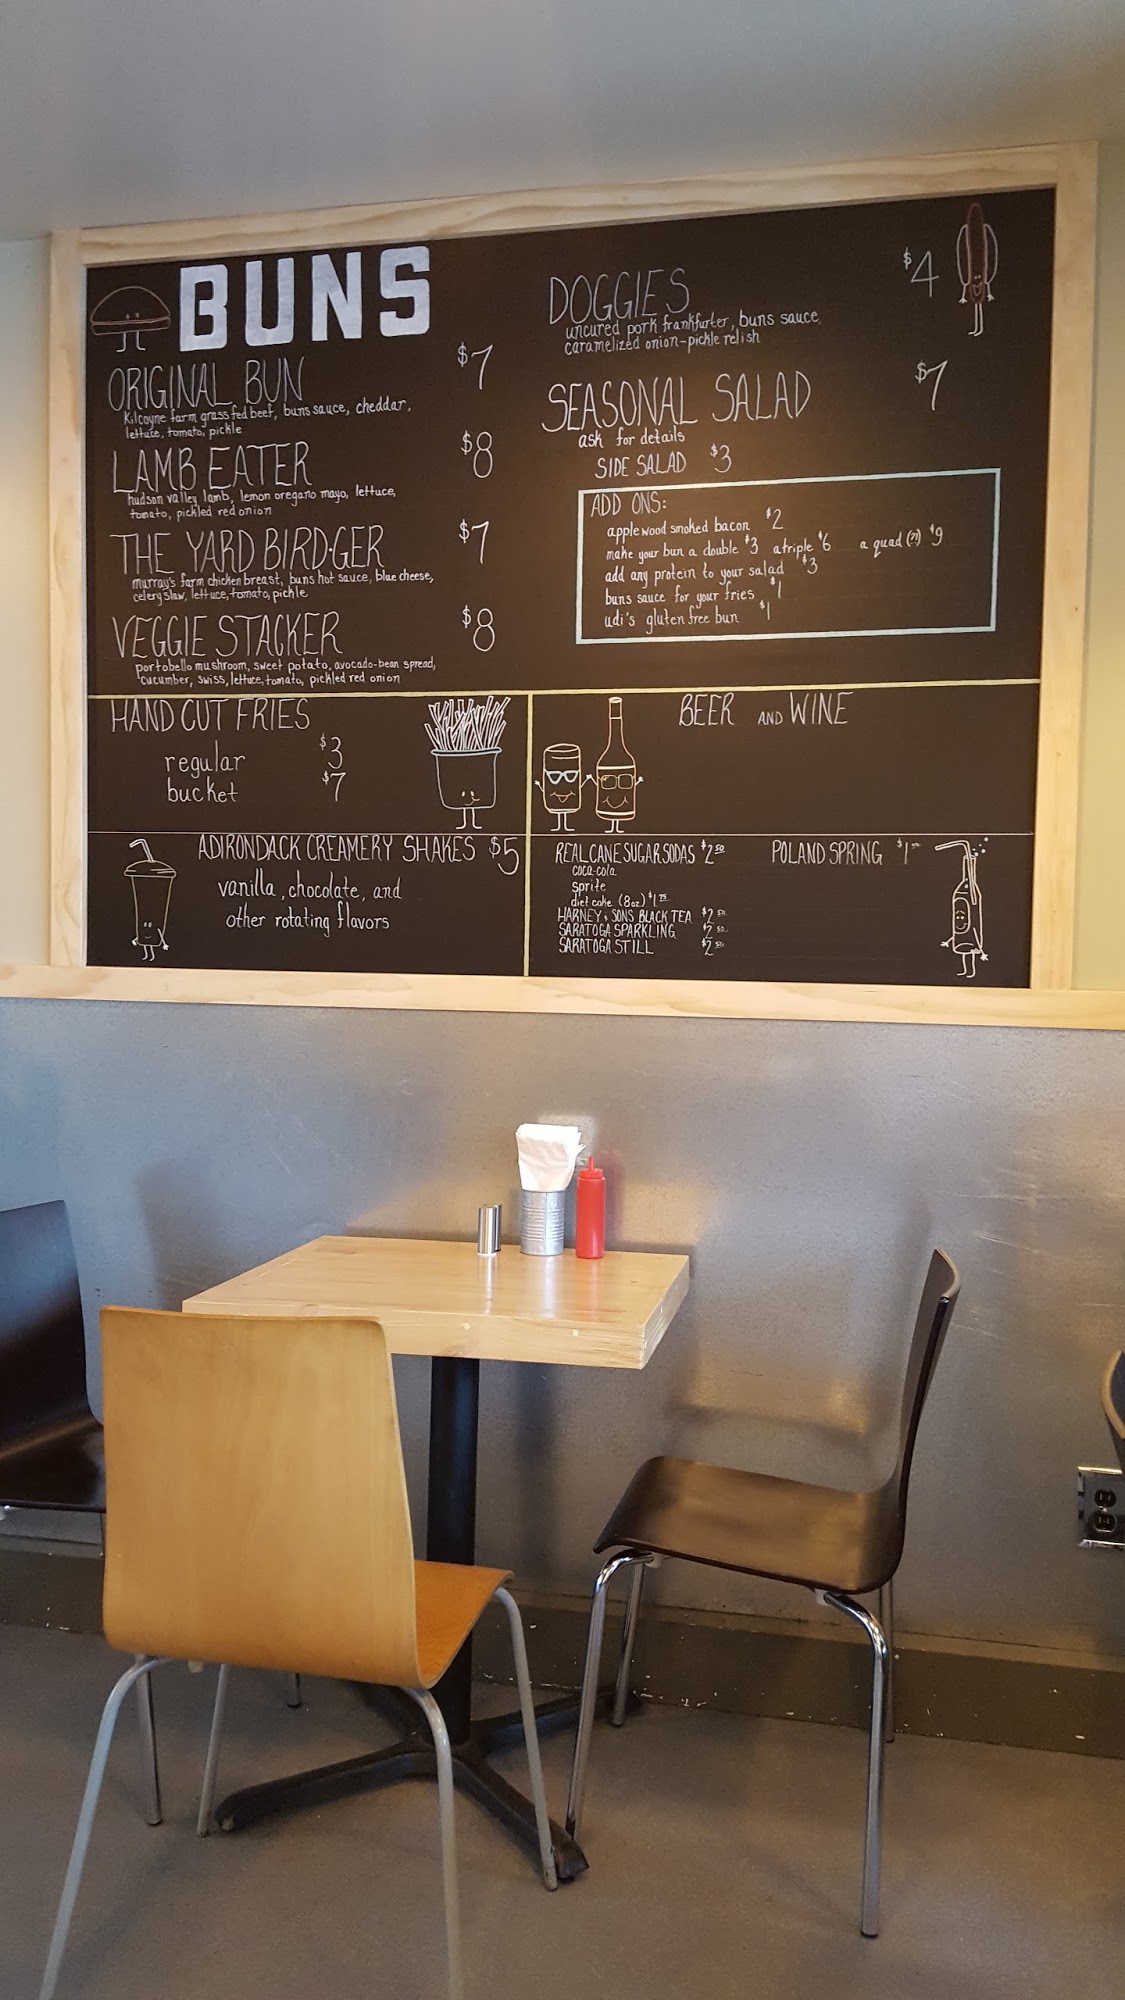 BUNS
ORIGINAL BUN $7
Kilcoyne farm grass fed beef, buns sauce, cheddar,
lettuce, tomato, pickle
LAMB EATER $8
hudson valley lamb, lemon oregano mayo, lettuce,
tomato, pickled red onion
THE YARD BIRD-GER $7
murray's farm chicken breast, buns hot sauce, blue cheese,
celery slaw, lettuce, tomato, pickle
VEGGIE STACKER $8
portobello mushroom, sweet potato, avocado-bean spread,
cucumber, swiss, lettuce, tomato, pickled red onion
DOGGIES $4
uncured pork frankfurter, buns sauce,
caramelized onion-pickle relish
SEASONAL SALAD $7
ask for details
SIDE SALAD $3
ADD ONS:
applewood smoked bacon $2
make your bun a double $3 a triple $6 a quad (?!) $9
add any protein to your salad $3
buns sauce for your fries $1
udi's gluten free bun $1
HAND CUT FRIES
regular $3
bucket $7
BEER AND WINE
ADIRONDACK CREAMERY SHAKES $5
vanilla, chocolate, and
other rotating flavors
REAL CANE SUGAR SODAS $2.50 POLAND SPRING $1
coca-cola
sprite
diet coke (8oz) $1.75
HARNEY & SONS BLACK TEA $2.50
SARATOGA SPARKLING $2.50
SARATOGA STILL $2.50